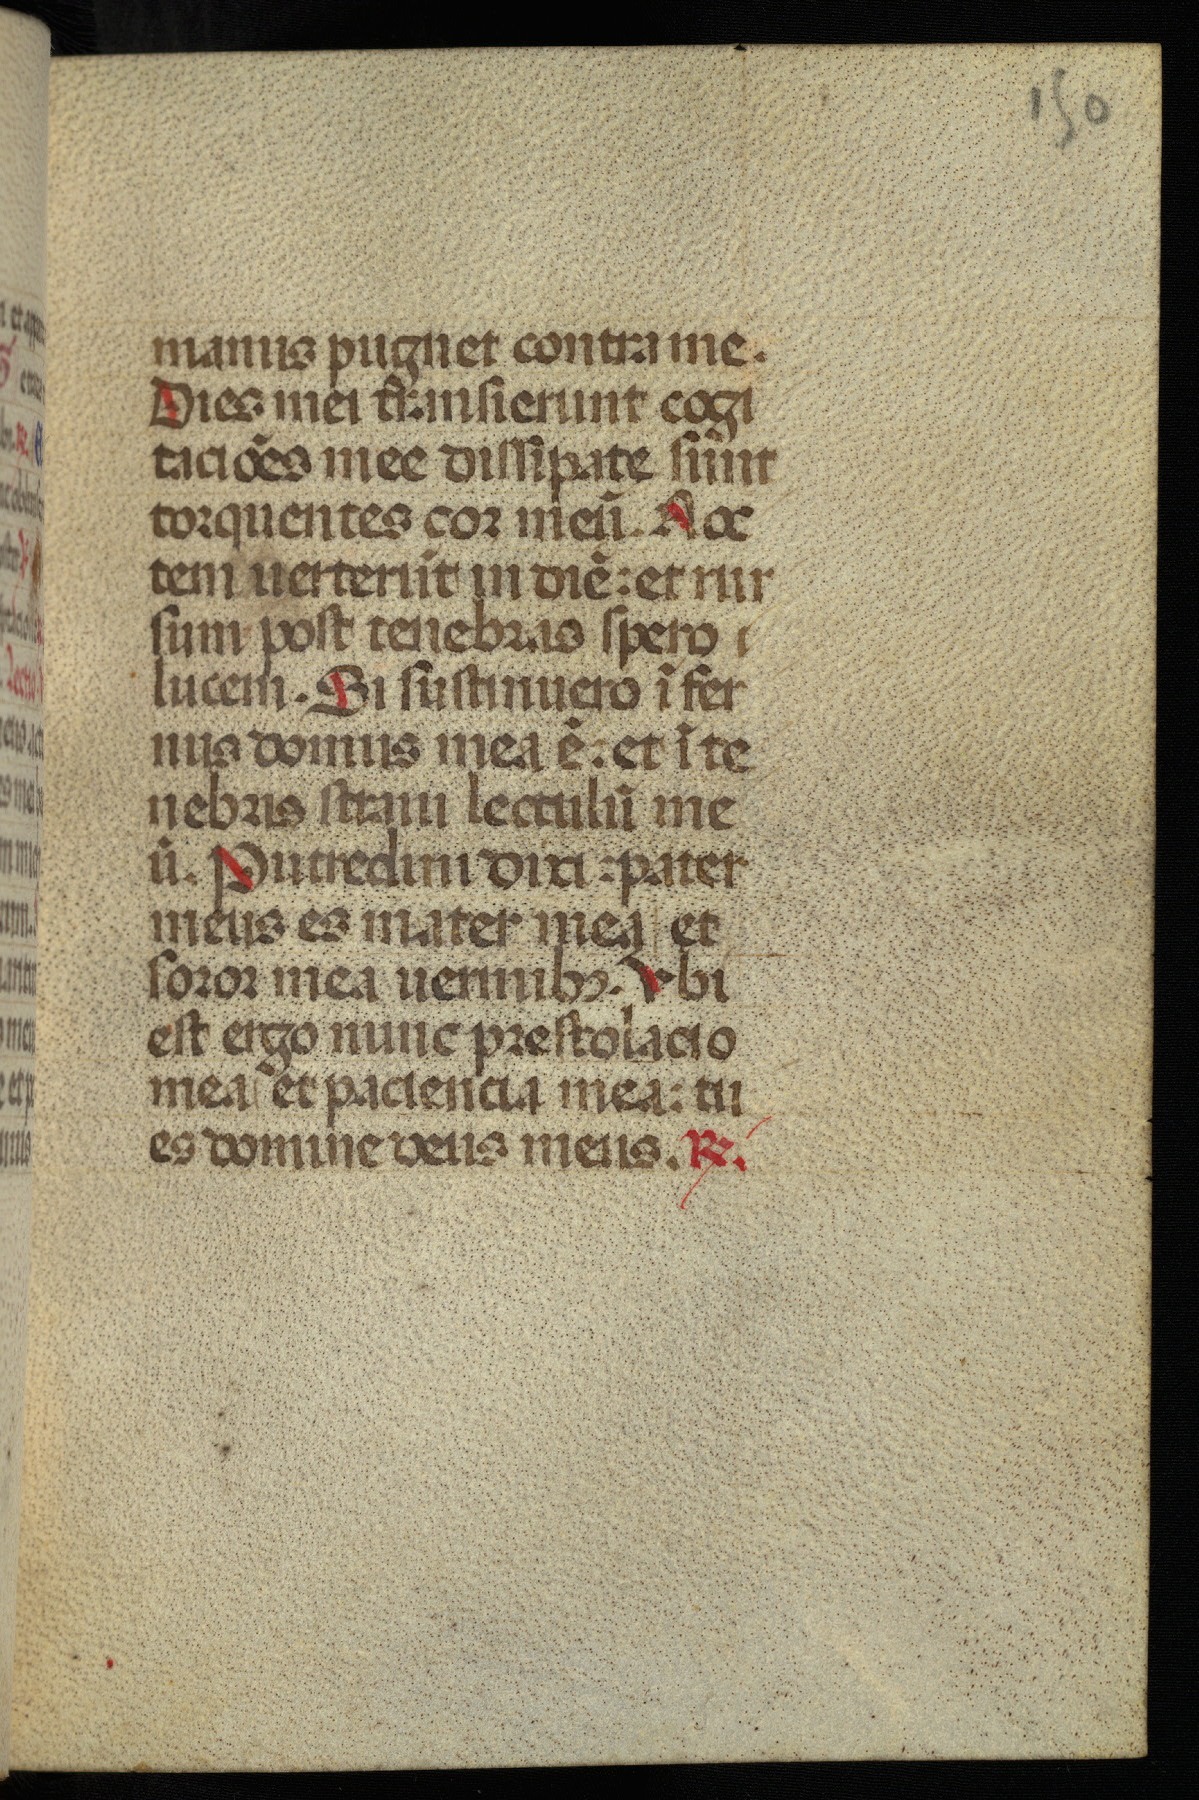 150
manus pugnet contra me.
Dies mei transierunt cogi
taciões mee dissipate sunt
torquentes cor meū. Noc
tem uerterūt in diē: et rur
sum post tenebras spero
lucem. Si sustinuero ī fer
nus domus mea ē: et ī te
nebris straui lectulū me
ū. Putredini dixi: pater
meus es mater mea et
soror mea uermibꝫ. Vbi
est ergo nunc prestolacio
mea et paciencia mea: tu
es domine deus meus. ℟.